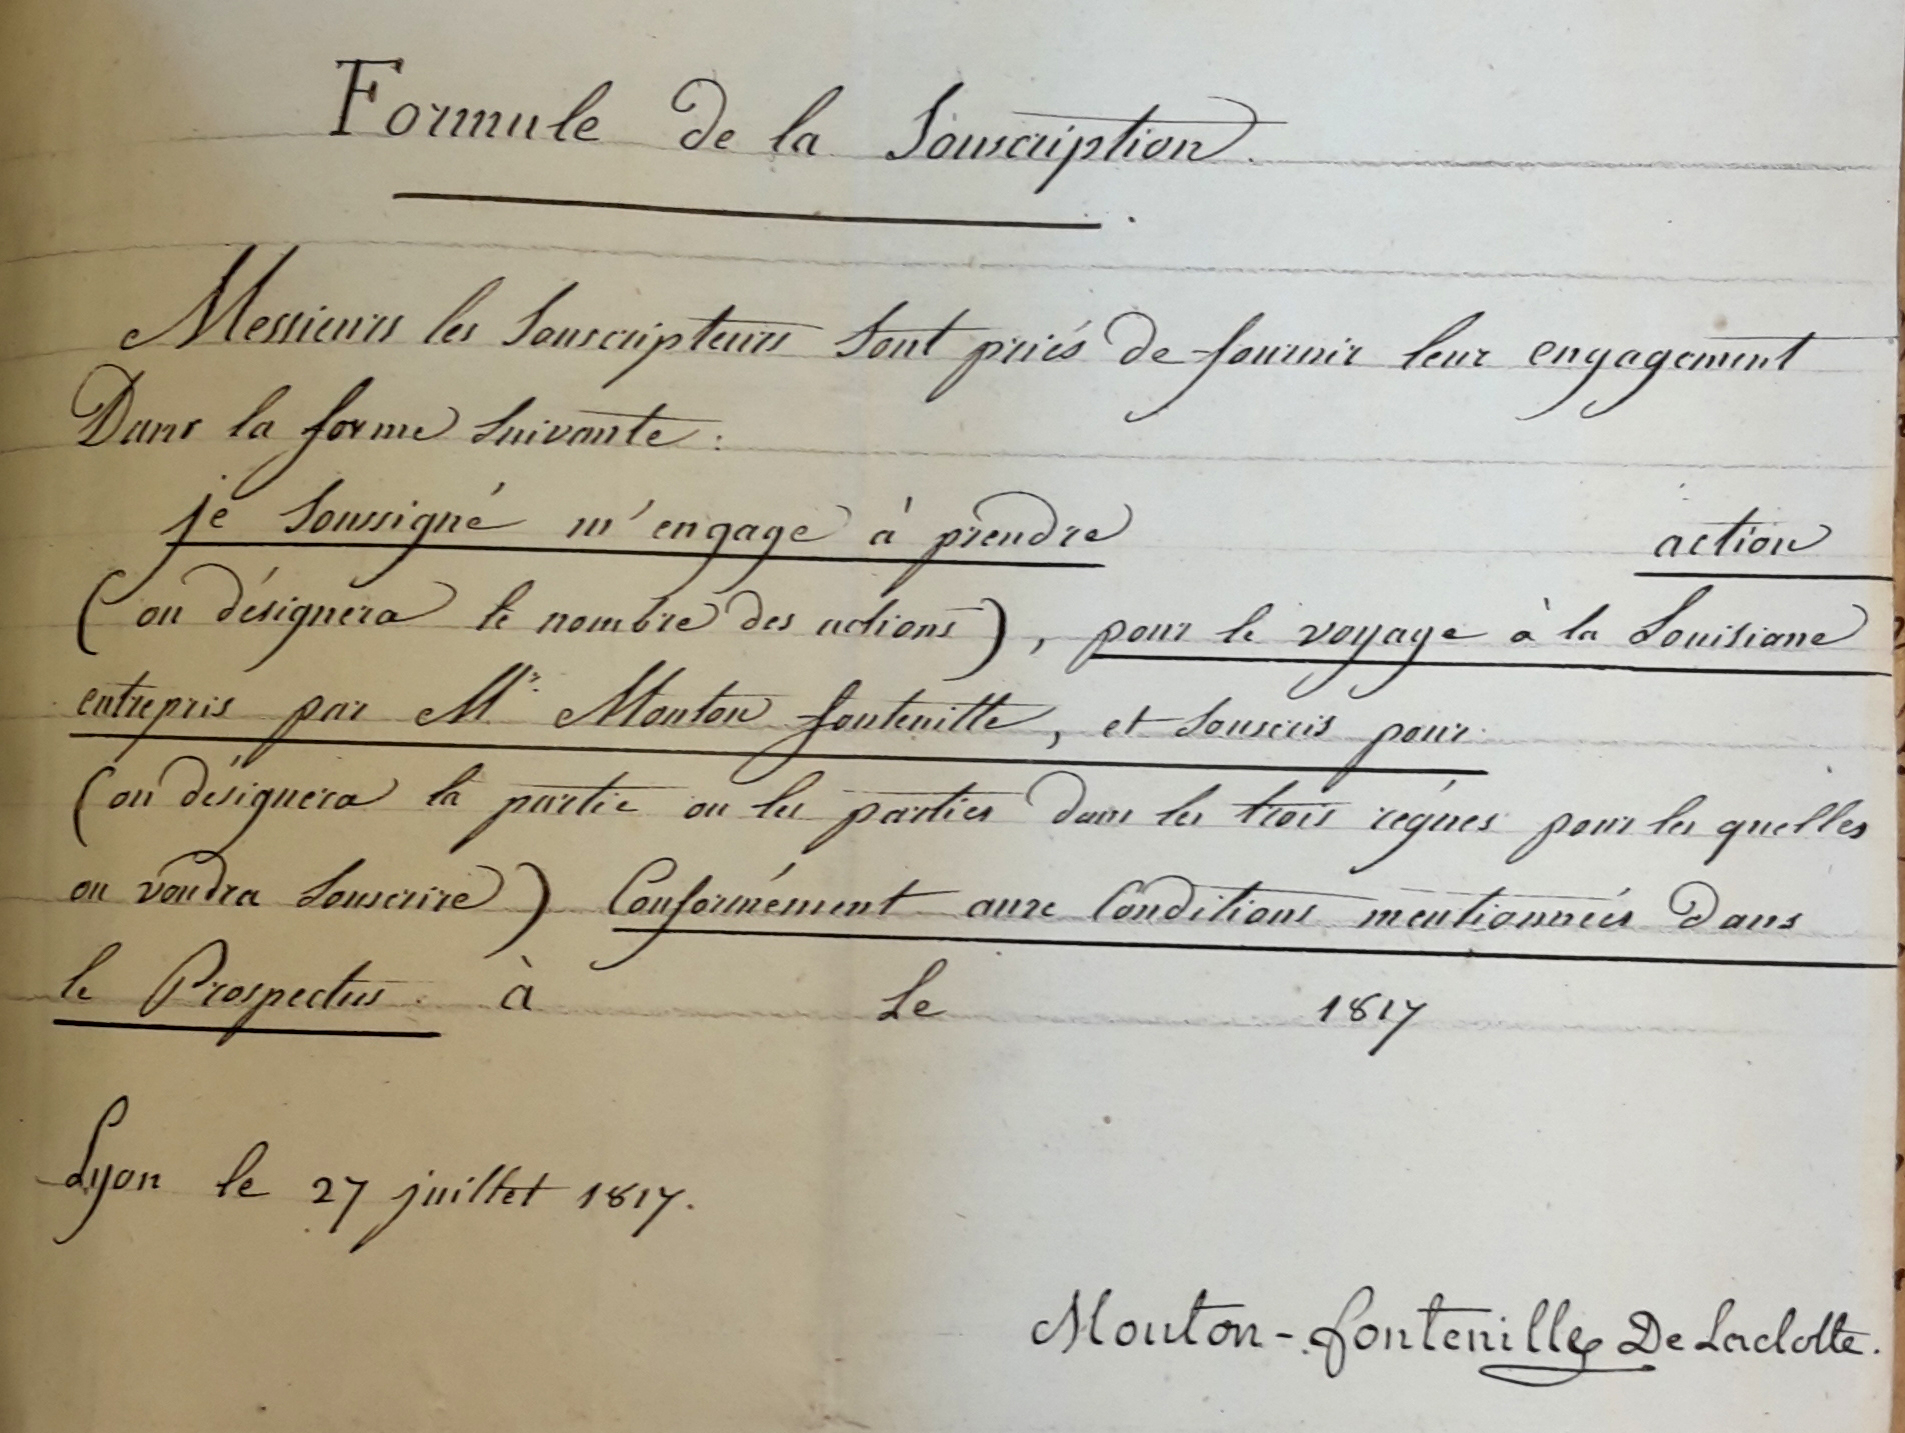 Formule de la Souscription.
Messieurs les Souscripteurs Sont priés de fournir leur engagement
Dans la forme Suivante :
je Soussigné m'engage à prendre action
(on désignera le nombre des actions), pour le voyage à la Louisiane
entrepris par Mr. Mouton fontenille, et Souscris pour
(on désignera la partie ou les parties dans les trois régnes pour les quelles
on voudra Souscrire) Conformément aux Conditions mentionnées Dans
le Prospectus. à Le 1817
Lyon le 27 juillet 1817.
Mouton-fontenille De Laclotte.